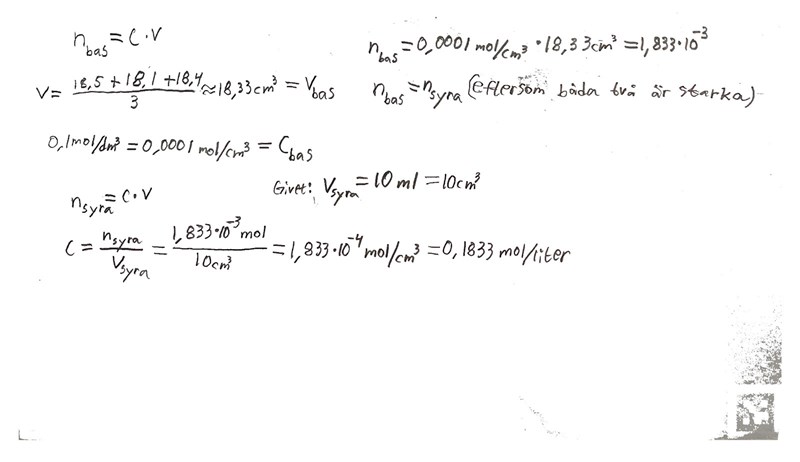 n_bas = C·V
n_bas = 0,0001 mol/cm³ · 18,33cm³ = 1,833·10⁻³
V = (18,5 + 18,1 + 18,4)/3 ≈ 18,33cm³ = V_bas
n_bas = n_syra (eftersom båda två är starka)
0,1mol/dm³ = 0,0001 mol/cm³ = C_bas
Givet: V_syra = 10 ml = 10cm³
n_syra = C·V
C = n_syra/V_syra = 1,833·10⁻³ mol/10cm³ = 1,833·10⁻⁴ mol/cm³ = 0,1833 mol/liter